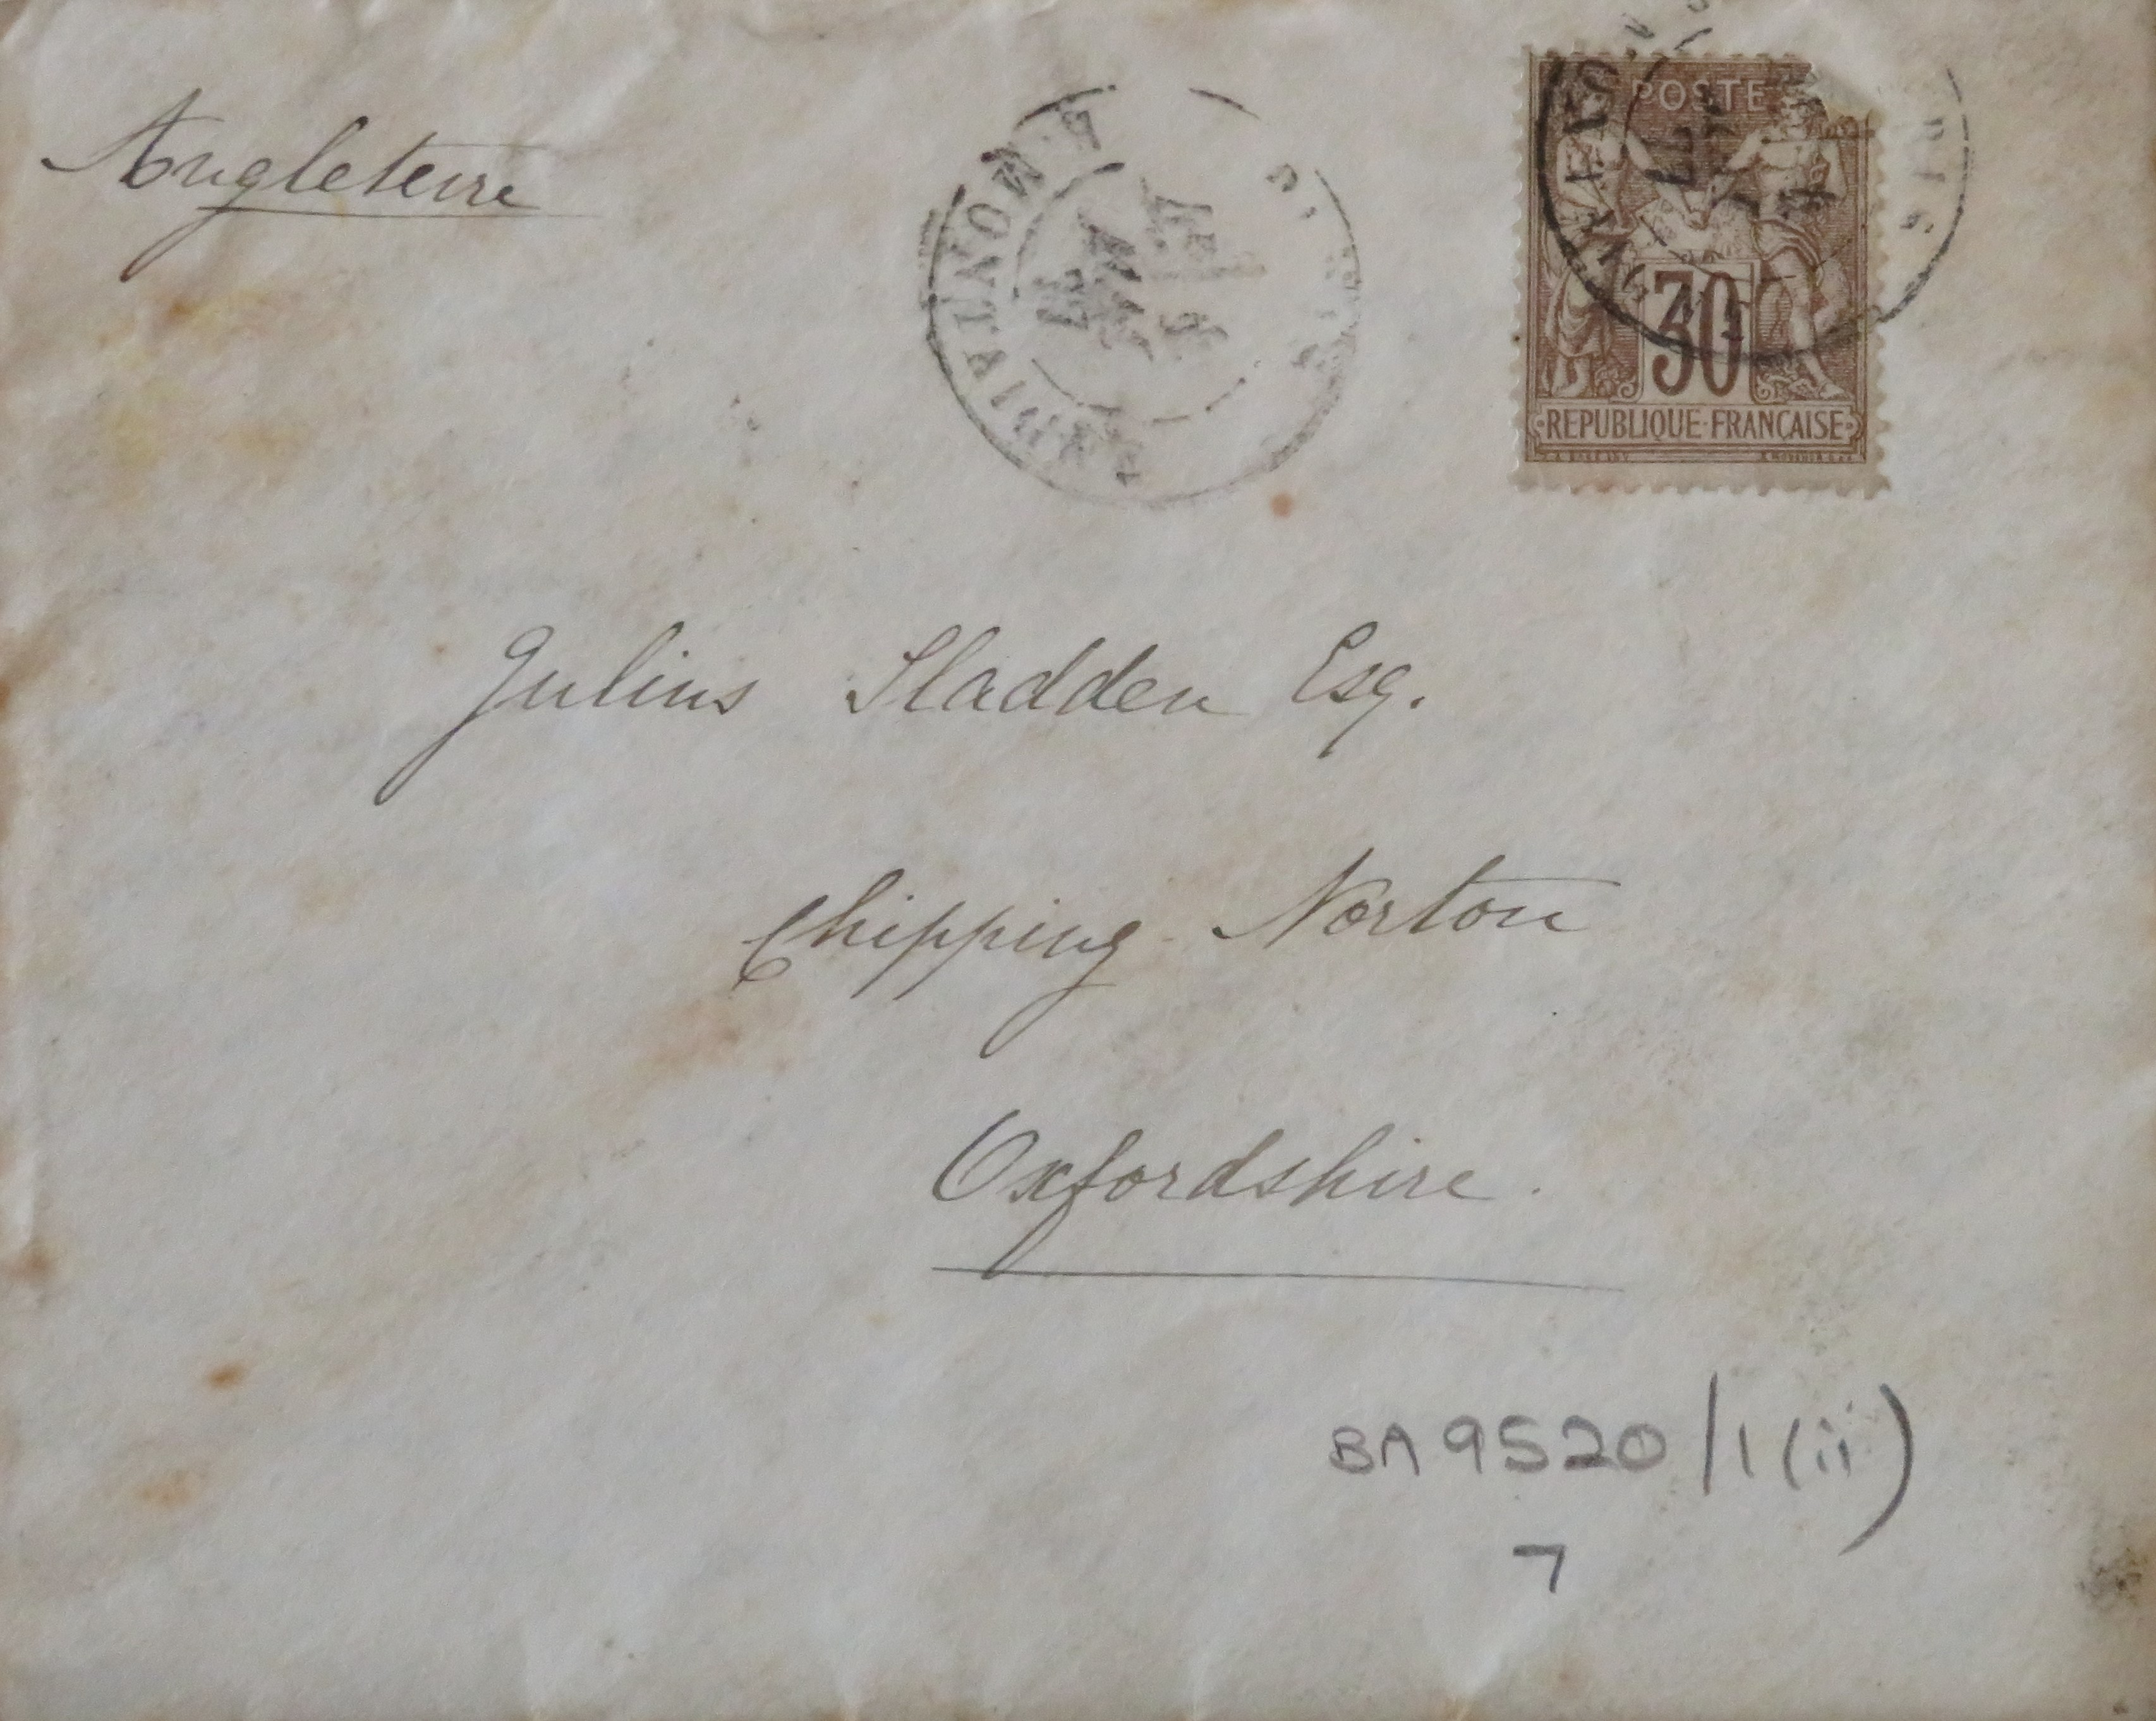 Angleterre
POSTE
30
REPUBLIQUE FRANÇAISE
Julius Sladden Esq.
Chipping Norton
Oxfordshire.
BA 9520/1(ii)
7